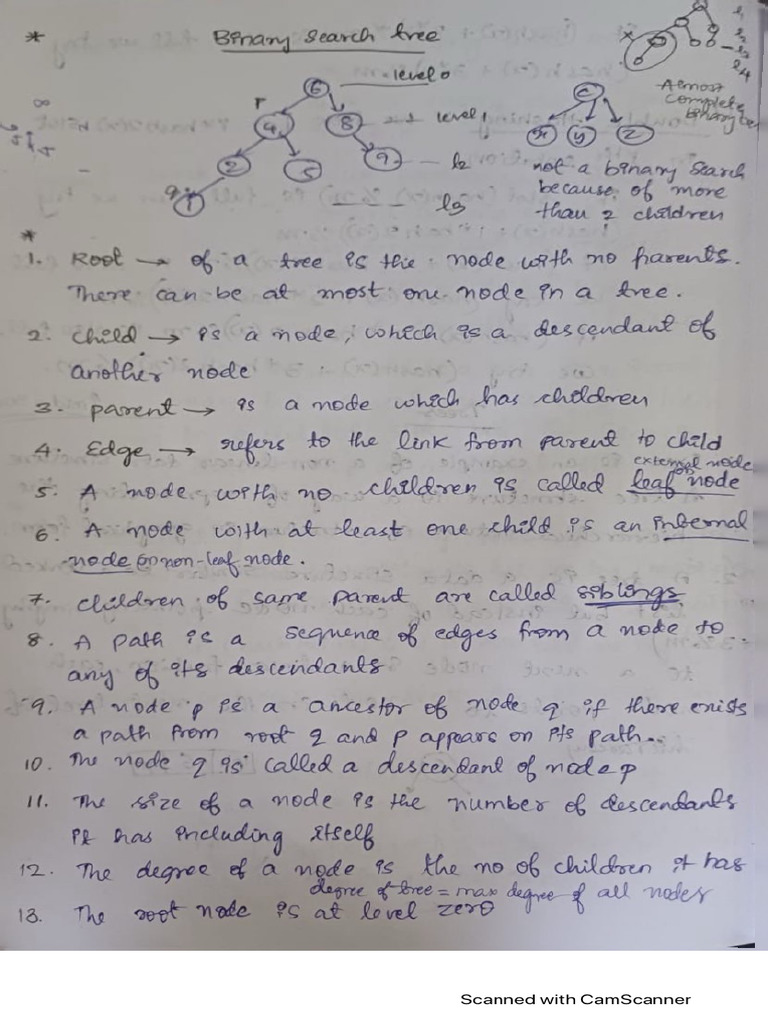 * Binary search tree
6 level 0
4 8 level 1
2 5 9 l2
1 l3
x y z
Almost
complete
binary tree
not a binary search
because of more
than 2 children
*
1. Root → of a tree is the node with no parents.
There can be at most one node in a tree.
2. child → is a node, which is a descendant of
another node
3. parent → is a node which has children
4. Edge → refers to the link from parent to child
external node
5. A node with no children is called leaf node
6. A node with at least one child is an internal
node or non-leaf node.
7. children of same parent are called siblings
8. A path is a sequence of edges from a node to
any of its descendants
9. A node p is a ancestor of node q if there exists
a path from root q and p appears on its path.
10. The node q is called a descendant of node p
11. The size of a node is the number of descendants
it has including itself
12. The degree of a node is the no of children it has
degree of tree = max degree of all nodes
13. The root node is at level zero
Scanned with CamScanner